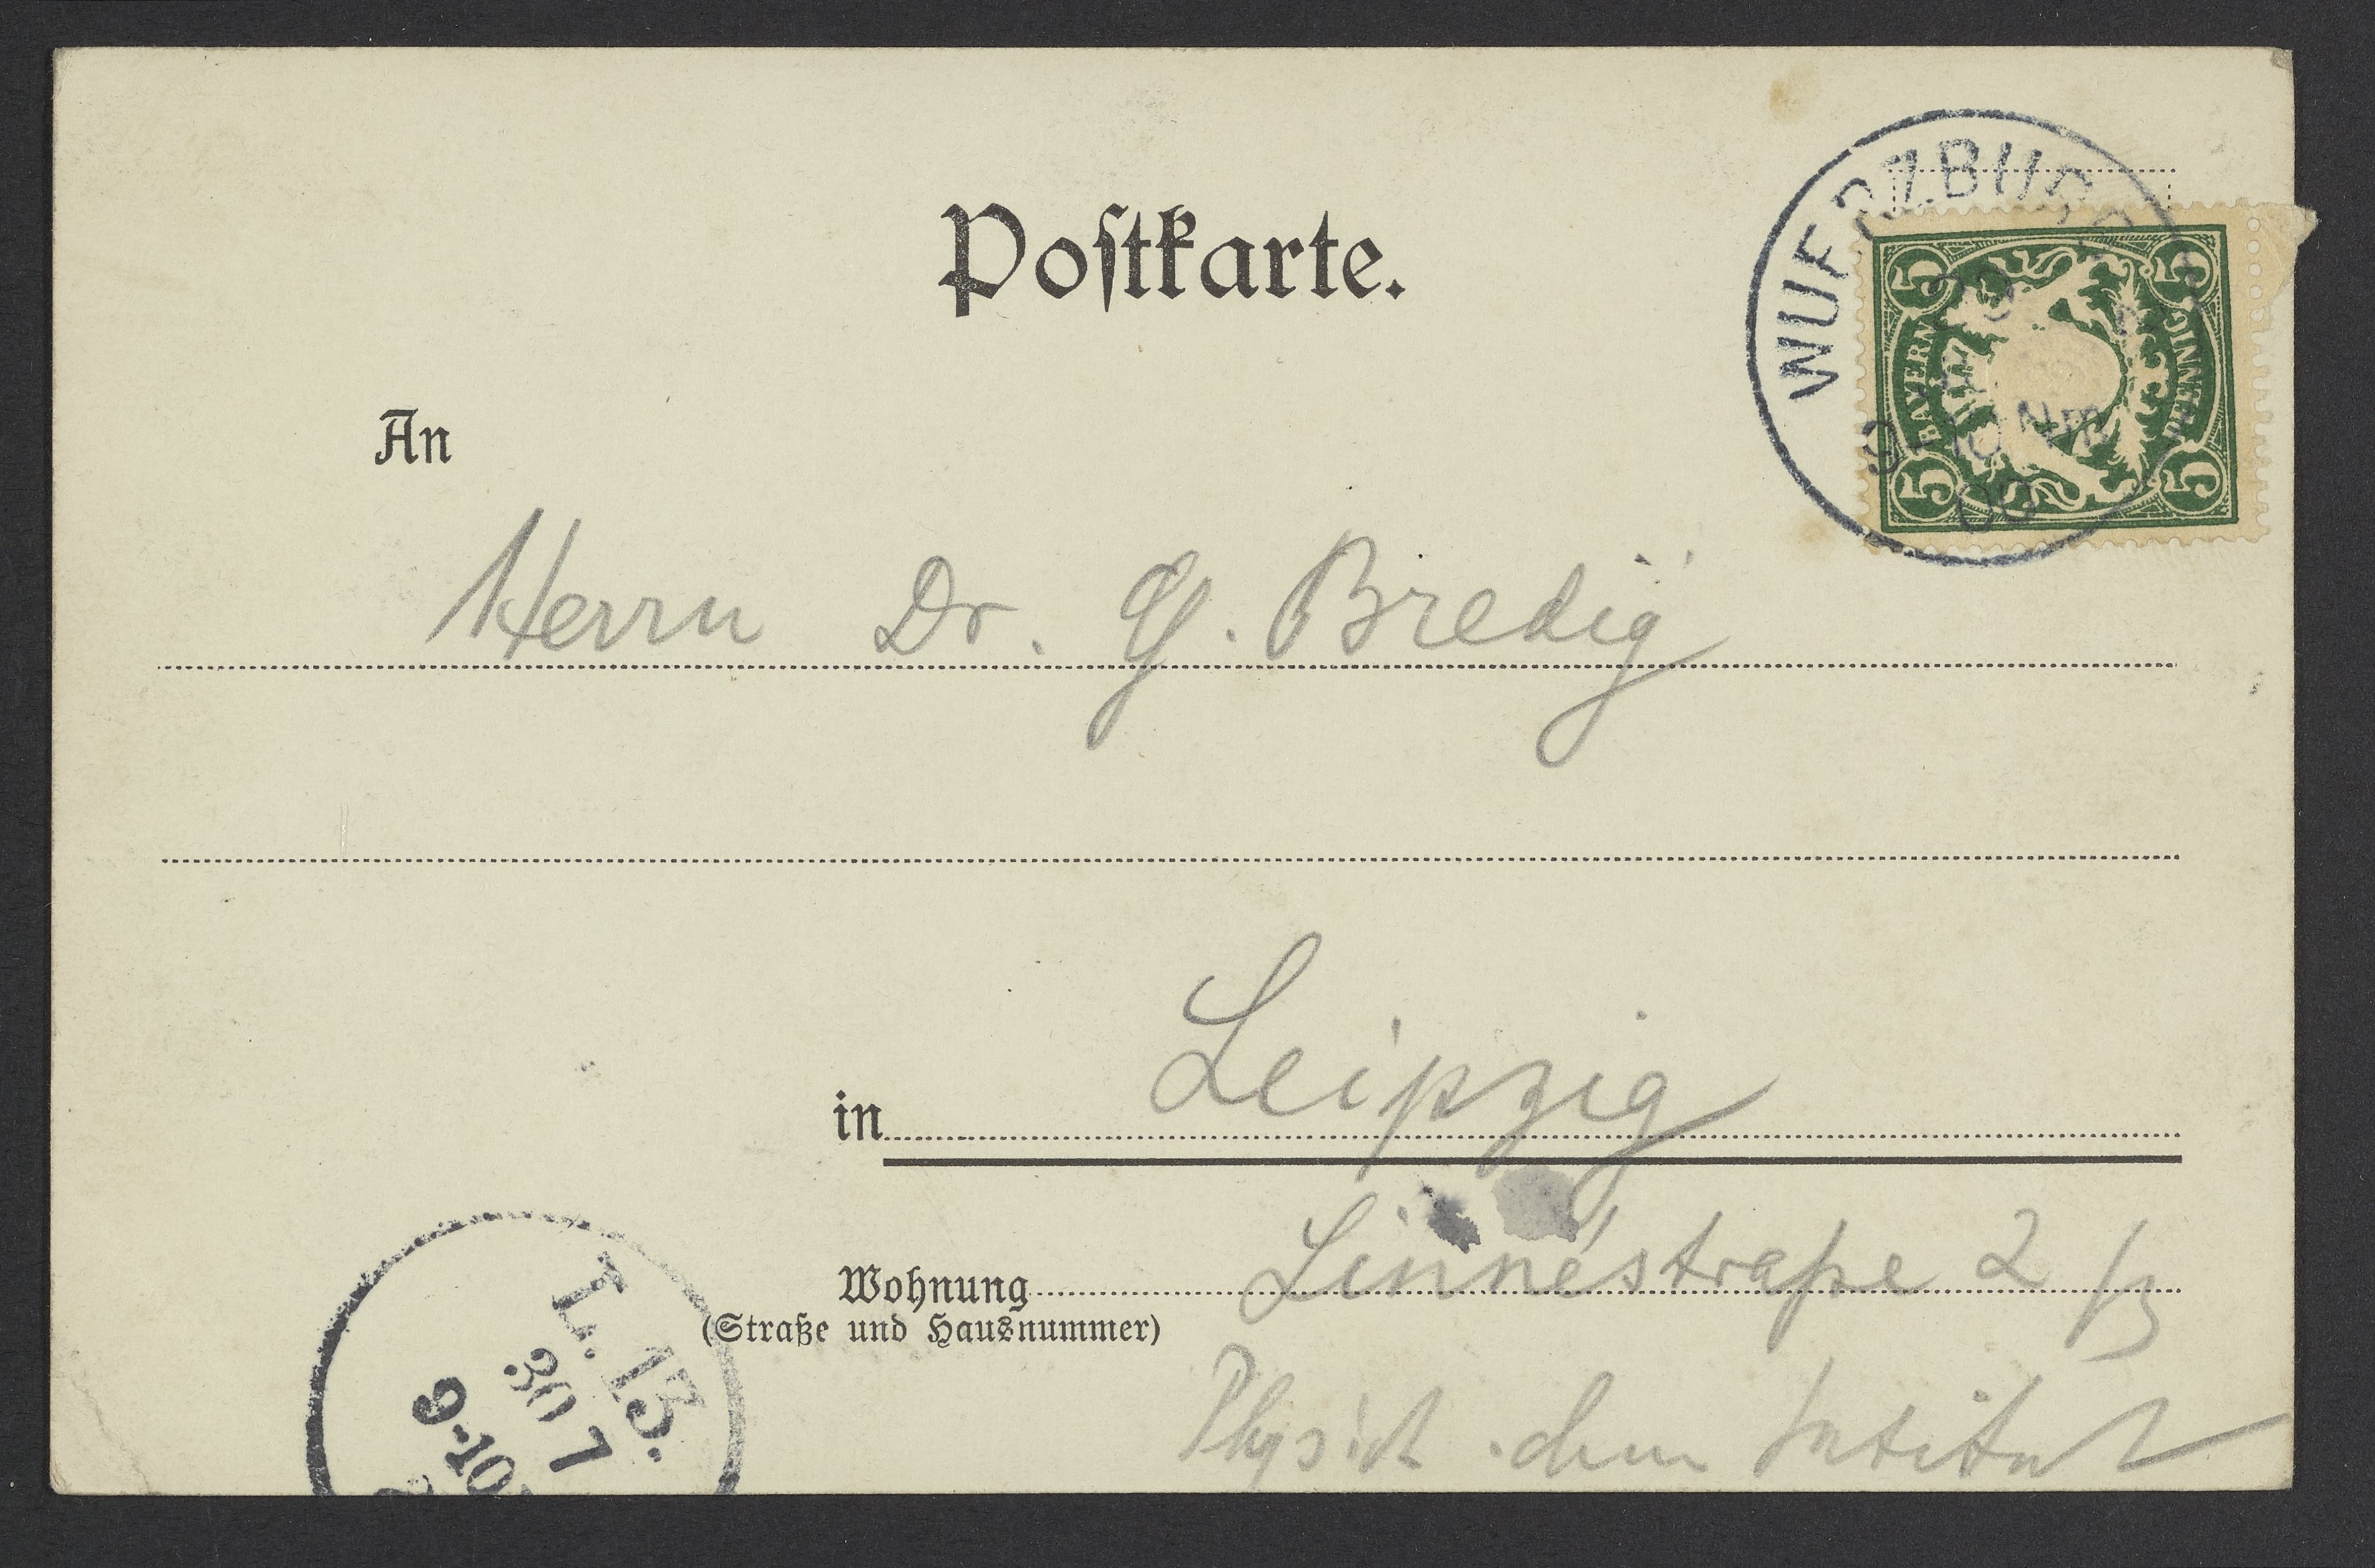 Postkarte.
WUERZBURG
5 5
BAYERN
PFENNIG
5 5
NM
00
An
Herrn Dr. G. Bredig
in Leipzig
Wohnung Linnéstraße 2/3
(Straße und Hausnummer)
Physik. chem Institut
L. 13.
30 7
9-10